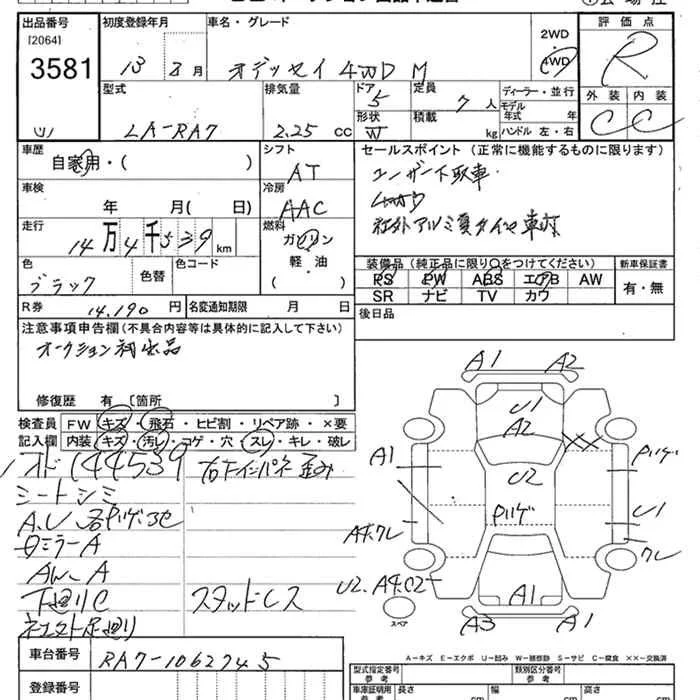 出品番号
[2064]
3581
初度登録年月
13 8月
車名・グレード
オデッセイ 4WD M
2WD
4WD
評価点
R
外装 内装
C C
型式
LA-RA7
排気量
2.25 cc
ドア
5
定員
7人
ディーラー・並行
形状
W
積載
kg
モデル
年式 年
ハンドル 左・右
車歴
自家用・( )
シフト
AT
セールスポイント (正常に機能するものに限ります)
ユーザー下取車
4WD
社外アルミ夏タイヤ車載
車検
年 月( 日)
冷房
AAC
走行
14万4千539km
燃料
ガソリン
軽・油
( )
色
ブラック
色替
色コード
装備品(純正品に限り○をつけてください)
PS PW ABS エアB AW
SR ナビ TV カワ
新車保証書
有・無
R券 14,190円
名変通知期限 月 日
後日品
注意事項申告欄(不具合内容等は具体的に記入して下さい)
オークション初出品
修復歴 有〔箇所 〕
検査員 FW キズ・飛石・ヒビ割・リペア跡・×要
記入欄 内装 キズ・汚レ・コゲ・穴・スレ・キレ・破レ
144539
シートシミ
ミラーA
AW-A
下廻りC
スタッドレス
A1 A2
U1
A2
A1
U2
U1
A1
A3 A1
スペア
A-キズ E-エクボ U-凹み W-補修跡 S-サビ C-腐食 ××-交換済
車台番号
RA7-1062745
登録番号
型式指定番号
参考
類別区分番号
参考
車庫証明用
参考
長さ cm
幅 cm
高さ cm